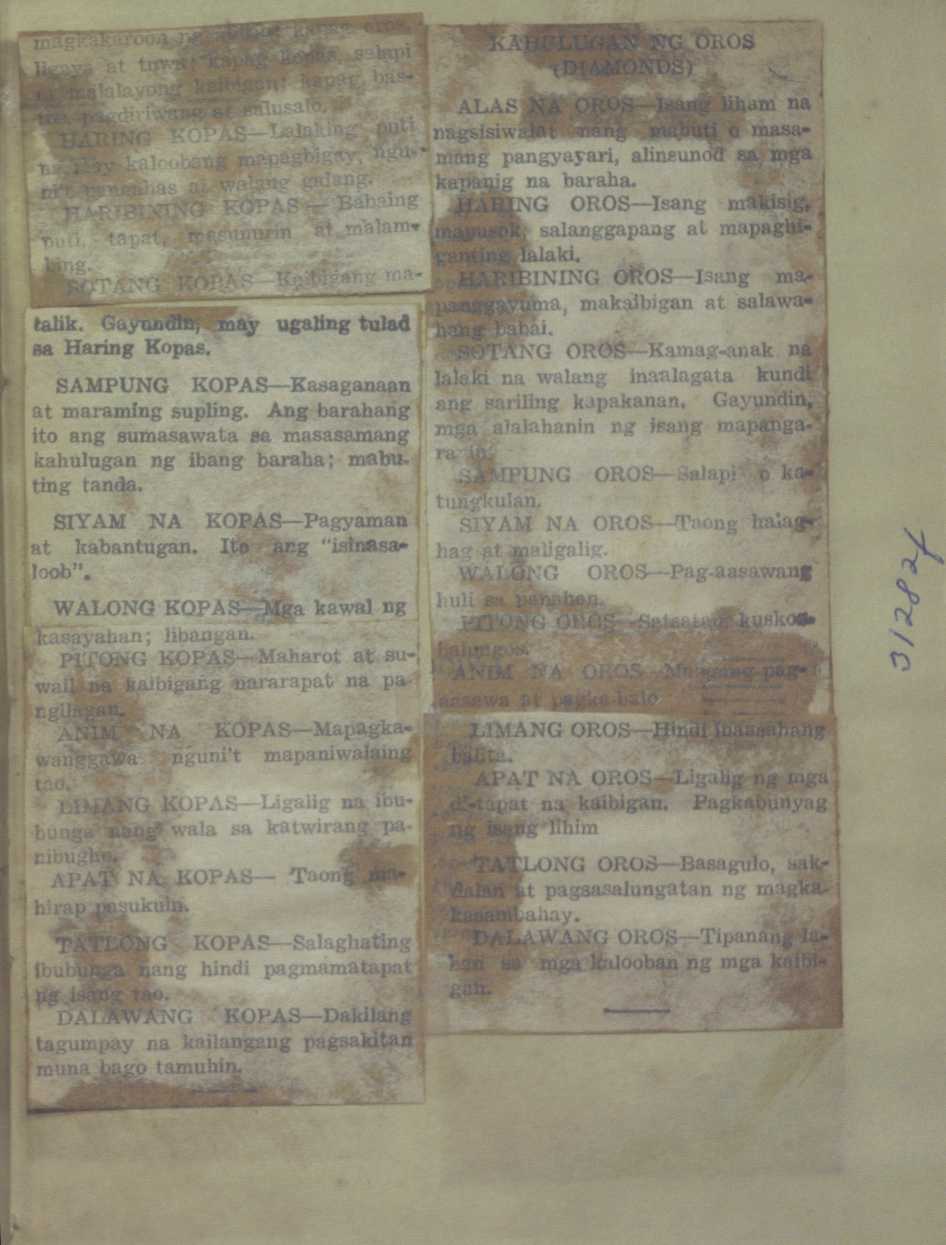 magkakaroon ng
ligaya at tuwa; kapag kopas, salapi
at malalayong kaibigan; kapag bas-
tos, pagdiriwang at salusalo.
HARING KOPAS—Lalaking puti
na may kaloobang mapagbigay, ngu-
ni't pangahas at walang galang.
HARIBINING KOPAS — Babaing
puti, tapat, masunurin at malam-
bing.
SOTANG KOPAS—Kaibigang ma-
talik. Gayundin, may ugaling tulad
sa Haring Kopas.
SAMPUNG KOPAS—Kasaganaan
at maraming supling. Ang barahang
ito ang sumasawata sa masasamang
kahulugan ng ibang baraha; mabu-
ting tanda.
SIYAM NA KOPAS—Pagyaman
at kabantugan. Ito ang "isinasa-
loob".
WALONG KOPAS—Mga kawal ng
kasayahan; libangan.
PITONG KOPAS—Maharot at su-
wail na kaibigang nararapat na pa-
ngilagan.
ANIM NA KOPAS—Mapagka-
wanggawa nguni't mapaniwalaing
tao.
LIMANG KOPAS—Ligalig na ibu-
bunga nang wala sa katwirang pa-
nibugho.
APAT NA KOPAS— Taong ma-
hirap pasukuin.
TATLONG KOPAS—Salaghating
ibubunga nang hindi pagmamatapat
ng isang tao.
DALAWANG KOPAS—Dakilang
tagumpay na kailangang pagsakitan
muna bago tamuhin.
KAHULUGAN NG OROS
(DIAMONDS)
ALAS NA OROS—Isang liham na
nagsisiwalat nang mabuti o masa-
mang pangyayari, alinsunod sa mga
kapanig na baraha.
HARING OROS—Isang makisig,
mapusok, salanggapang at mapaghi-
ganting lalaki.
HARIBINING OROS—Isang ma-
panggayuma, makaibigan at salawa-
hang babai.
SOTANG OROS—Kamag-anak na
lalaki na walang inaalagata kundi
ang sariling kapakanan. Gayundin,
mga alalahanin ng isang mapanga-
rapin.
SAMPUNG OROS—Salapi o ka-
tungkulan.
SIYAM NA OROS—Taong halag-
hag at maligalig.
WALONG OROS—Pag-aasawang
huli sa panahon.
PITONG OROS—Satsatan, kuskos-
balungos.
ANIM NA OROS—Maagang pag-
aasawa at pagka-balo
LIMANG OROS—Hindi inaasahang
balita.
APAT NA OROS—Ligalig ng mga
di-tapat na kaibigan. Pagkabunyag
ng isang lihim
TATLONG OROS—Basagulo, sak-
dalan at pagsasalungatan ng magka-
kasambahay.
DALAWANG OROS—Tipanang la-
ban sa mga kalooban ng mga kaibi-
gan.
31282f